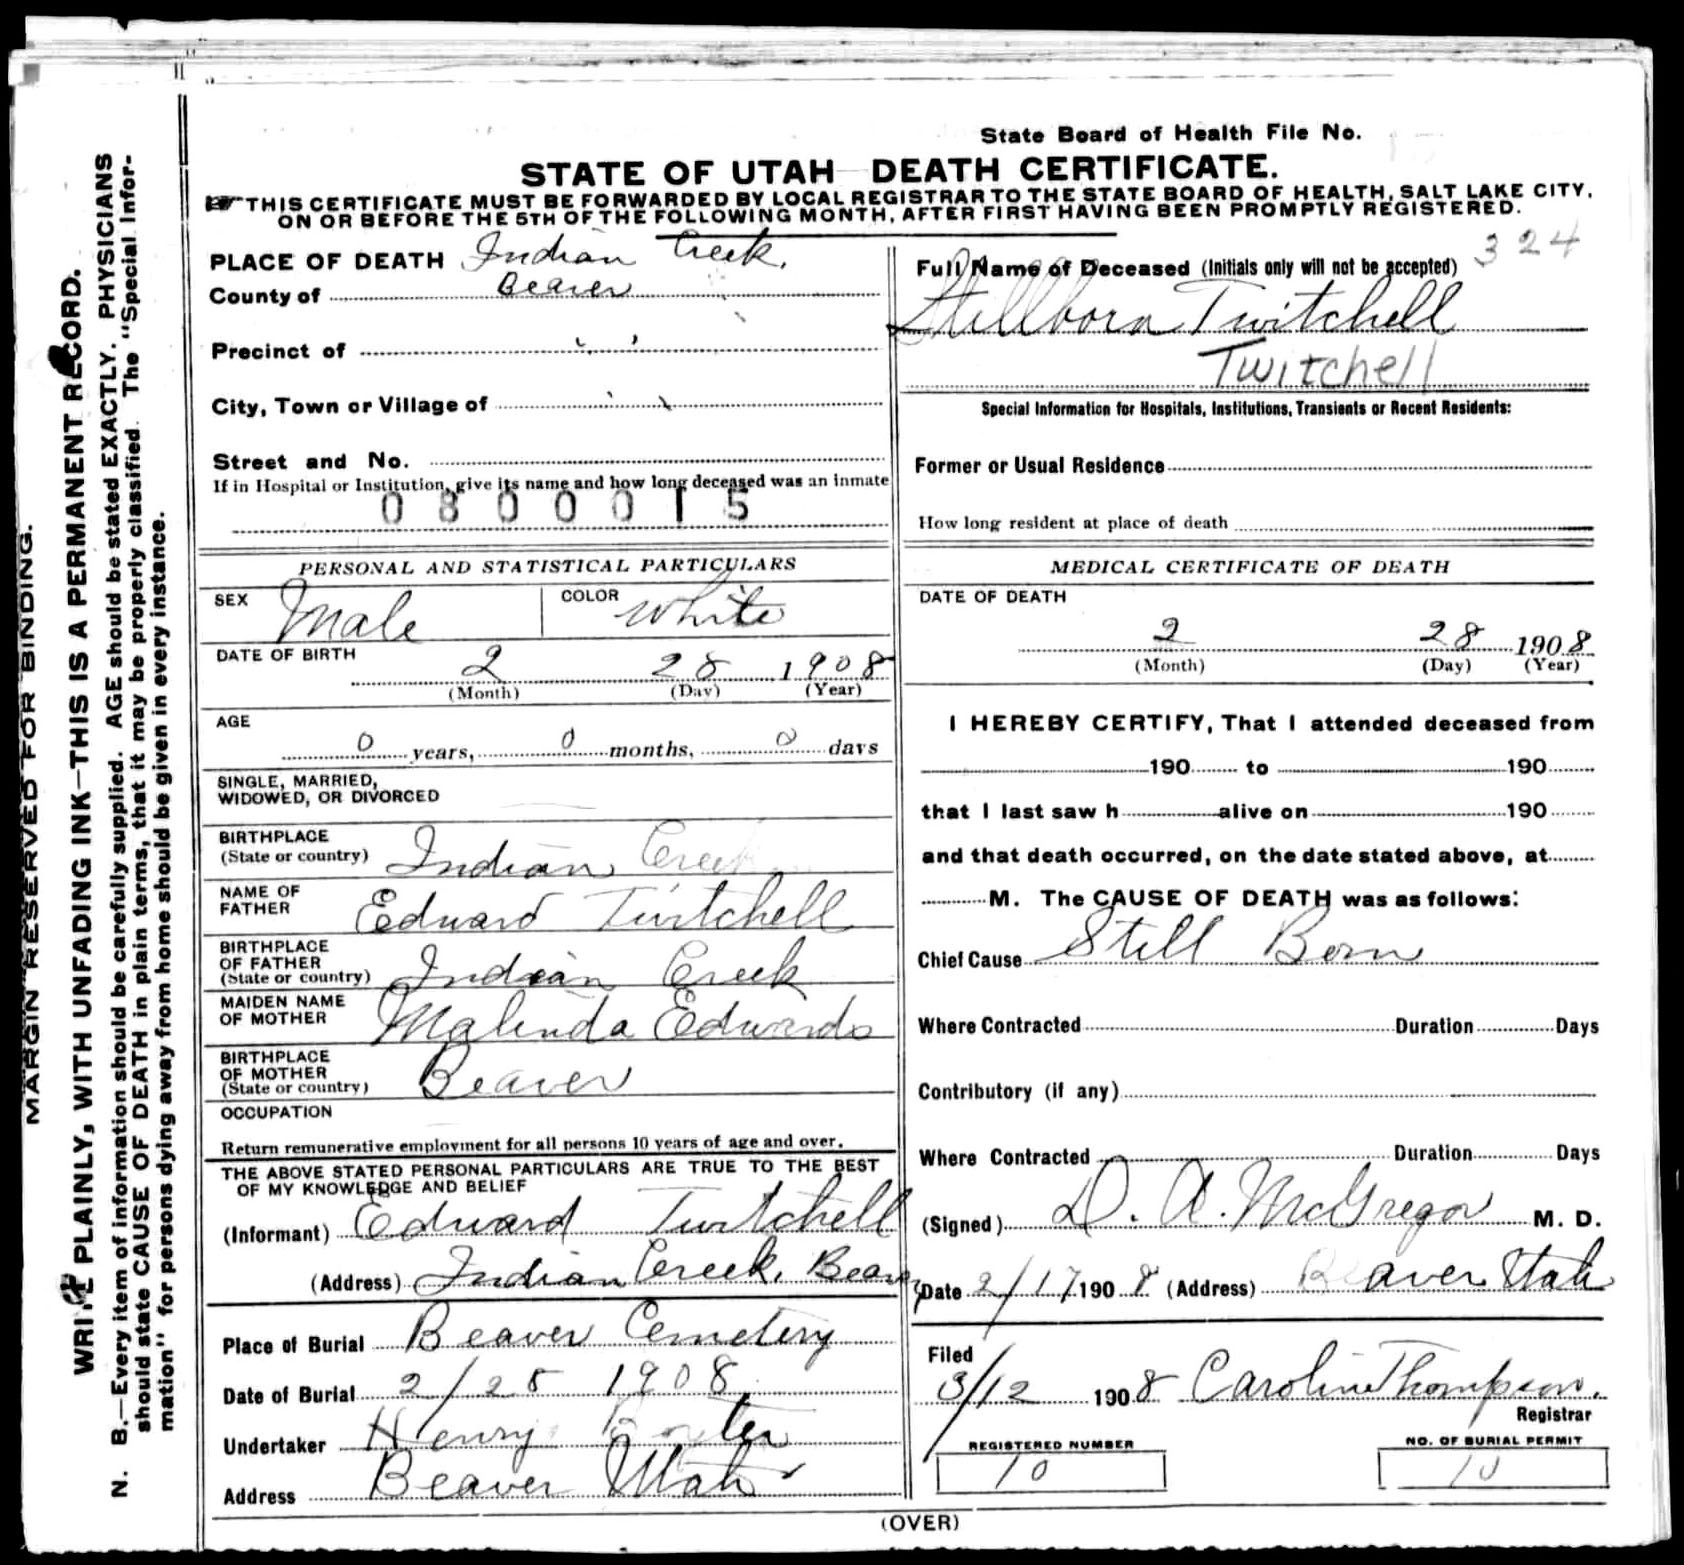 State Board of Health File No.
STATE OF UTAH DEATH CERTIFICATE.
THIS CERTIFICATE MUST BE FORWARDED BY LOCAL REGISTRAR TO THE STATE BOARD OF HEALTH, SALT LAKE CITY,
ON OR BEFORE THE 5TH OF THE FOLLOWING MONTH, AFTER FIRST HAVING BEEN PROMPTLY REGISTERED.
324
MARGIN RESERVED FOR BINDING.
WRITE PLAINLY, WITH UNFADING INK—THIS IS A PERMANENT RECORD.
N. B.—Every item of information should be carefully supplied. AGE should be stated EXACTLY. PHYSICIANS
should state CAUSE OF DEATH in plain terms, that it may be properly classified. The "Special Infor-
mation" for persons dying away from home should be given in every instance.
PLACE OF DEATH Indian Creek.
County of Beaver
Precinct of
City, Town or Village of
Street and No.
If in Hospital or Institution, give its name and how long deceased was an inmate
0800015
PERSONAL AND STATISTICAL PARTICULARS
SEX Male COLOR White
DATE OF BIRTH
2 28 1908
(Month) (Day) (Year)
AGE
0 years, 0 months, 0 days
SINGLE, MARRIED,
WIDOWED, OR DIVORCED
BIRTHPLACE
(State or country) Indian Creek
NAME OF
FATHER Edward Twitchell
BIRTHPLACE
OF FATHER
(State or country) Indian Creek
MAIDEN NAME
OF MOTHER Malinda Edwards
BIRTHPLACE
OF MOTHER
(State or country) Beaver
OCCUPATION
Return remunerative employment for all persons 10 years of age and over.
THE ABOVE STATED PERSONAL PARTICULARS ARE TRUE TO THE BEST
OF MY KNOWLEDGE AND BELIEF
(Informant) Edward Twitchell
(Address) Indian Creek, Beaver
Place of Burial Beaver Cemetery
Date of Burial 2/28 1908
Undertaker Henry
Address Beaver Utah
Full Name of Deceased (Initials only will not be accepted)
Stillborn Twitchell
Twitchell
Special Information for Hospitals, Institutions, Transients or Recent Residents:
Former or Usual Residence
How long resident at place of death
MEDICAL CERTIFICATE OF DEATH
DATE OF DEATH
2 28 1908
(Month) (Day) (Year)
I HEREBY CERTIFY, That I attended deceased from
190 to 190
that I last saw h alive on 190
and that death occurred, on the date stated above, at
M. The CAUSE OF DEATH was as follows:
Chief Cause Still Born
Where Contracted Duration Days
Contributory (if any)
Where Contracted Duration Days
(Signed) D. A. McGregor M. D.
Date 2/17 1908 (Address) Beaver Utah
Filed
3/12 1908 Caroline Thompson.
Registrar
REGISTERED NUMBER
10
NO. OF BURIAL PERMIT
10
(OVER)